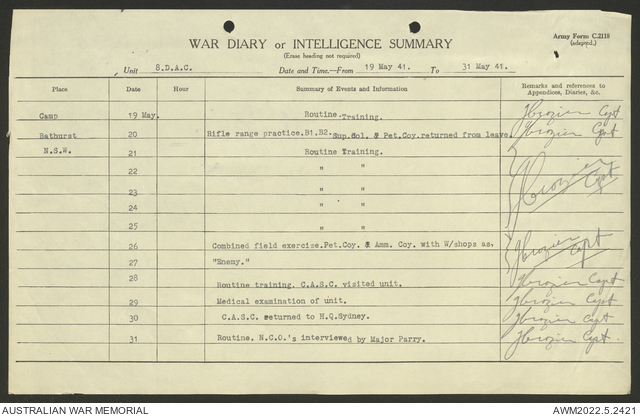 Army Form C.2118
(adapted.)
WAR DIARY or INTELLIGENCE SUMMARY
(Erase heading not required)
Unit 8.D.A.C. Date and Time.—From 19 May 41. To 31 May 41.
Place Date Hour Summary of Events and Information Remarks and references to Appendices, Diaries, &c.
Camp 19 May. Routine. Training. JCrozier Capt
Bathurst 20 Rifle range practice.B1.B2.Sup.Col. & Pet.Coy.returned from leave. JCrozier Capt
N.S.W. 21 Routine Training.
22 " "
23 " " JCrozier Capt
24 " "
25 " "
26 Combined field exercise.Pet.Coy. & Amm. Coy. with W/shops as. JCrozier Capt
27 "Enemy."
28 Routine training. C.A.S.C. visited unit. JCrozier Capt
29 Medical examination of unit. JCrozier Capt
30 C.A.S.C. returned to H.Q.Sydney. JCrozier Capt
31 Routine. N.C.O.'s interviewed by Major Parry. JCrozier Capt.
AUSTRALIAN WAR MEMORIAL AWM2022.5.2421